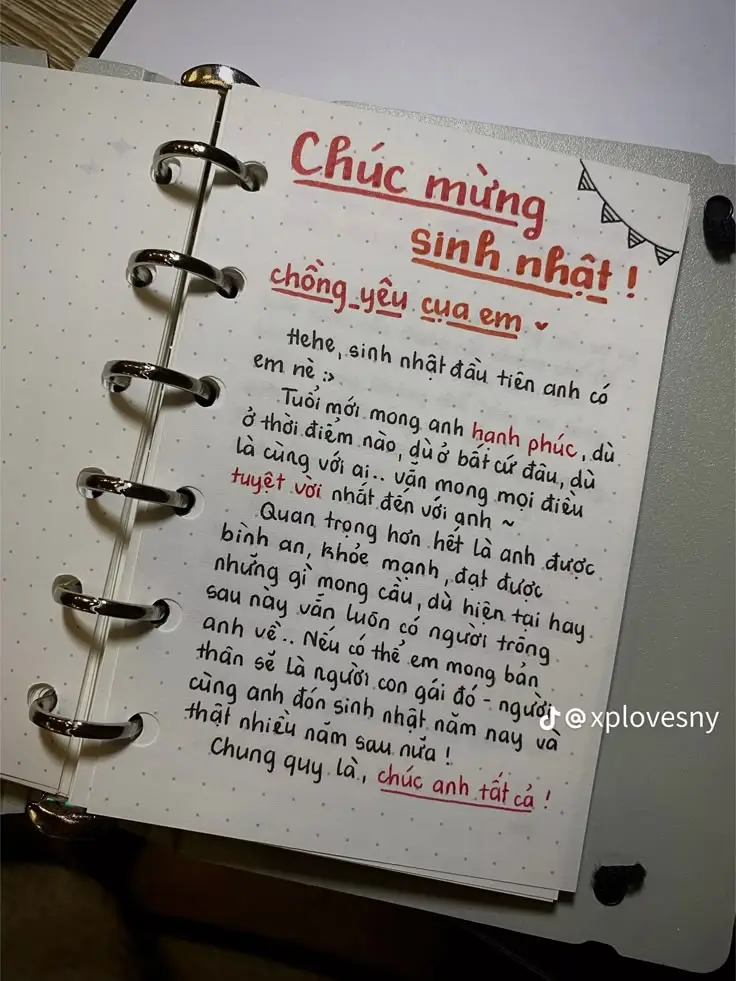 Chúc mừng
sinh nhật !
chồng yêu của em
Hehe, sinh nhật đầu tiên anh có
em nè :>
Tuổi mới mong anh hạnh phúc, dù
ở thời điểm nào, dù ở bất cứ đâu, dù
là cùng với ai.. vẫn mong mọi điều
tuyệt vời nhất đến với anh ~
Quan trọng hơn hết là anh được
bình an, khỏe mạnh, đạt được
những gì mong cầu, dù hiện tại hay
sau này vẫn luôn có người trông
anh về.. Nếu có thể em mong bản
thân sẽ là người con gái đó - người
cùng anh đón sinh nhật năm nay và
thật nhiều năm sau nữa !
Chung quy là, chúc anh tất cả !
@xplovesny